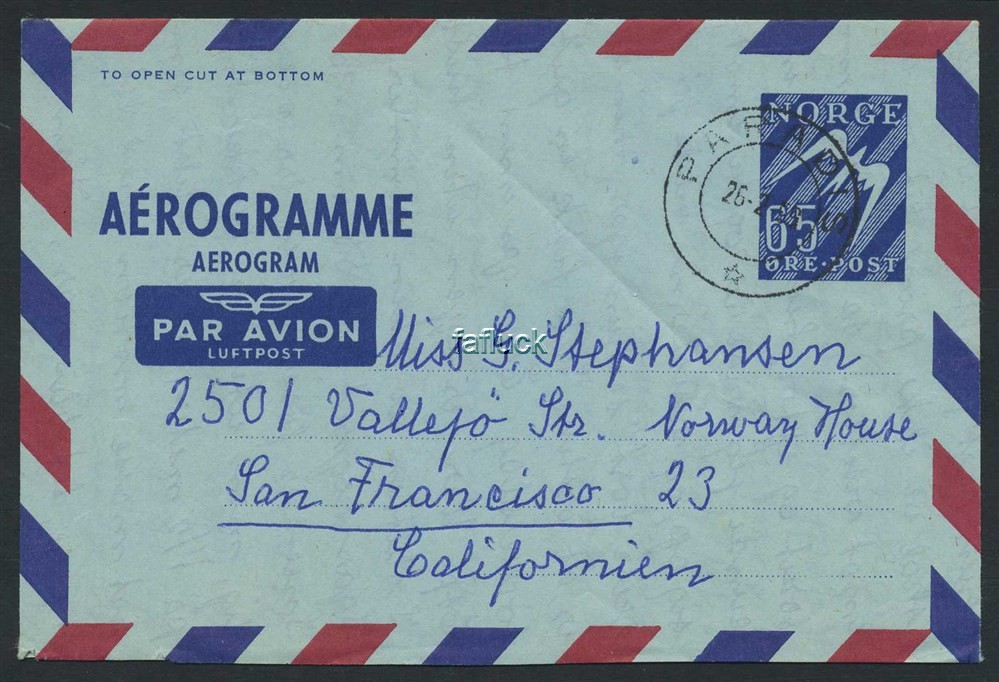 TO OPEN CUT AT BOTTOM
NORGE
65
ØRE·POST
PARADIS
AÉROGRAMME
AEROGRAM
PAR AVION
LUFTPOST
fafluck
Miss G. Stephansen
2501 Vallejö Str. Norway House
San Francisco 23
Californien